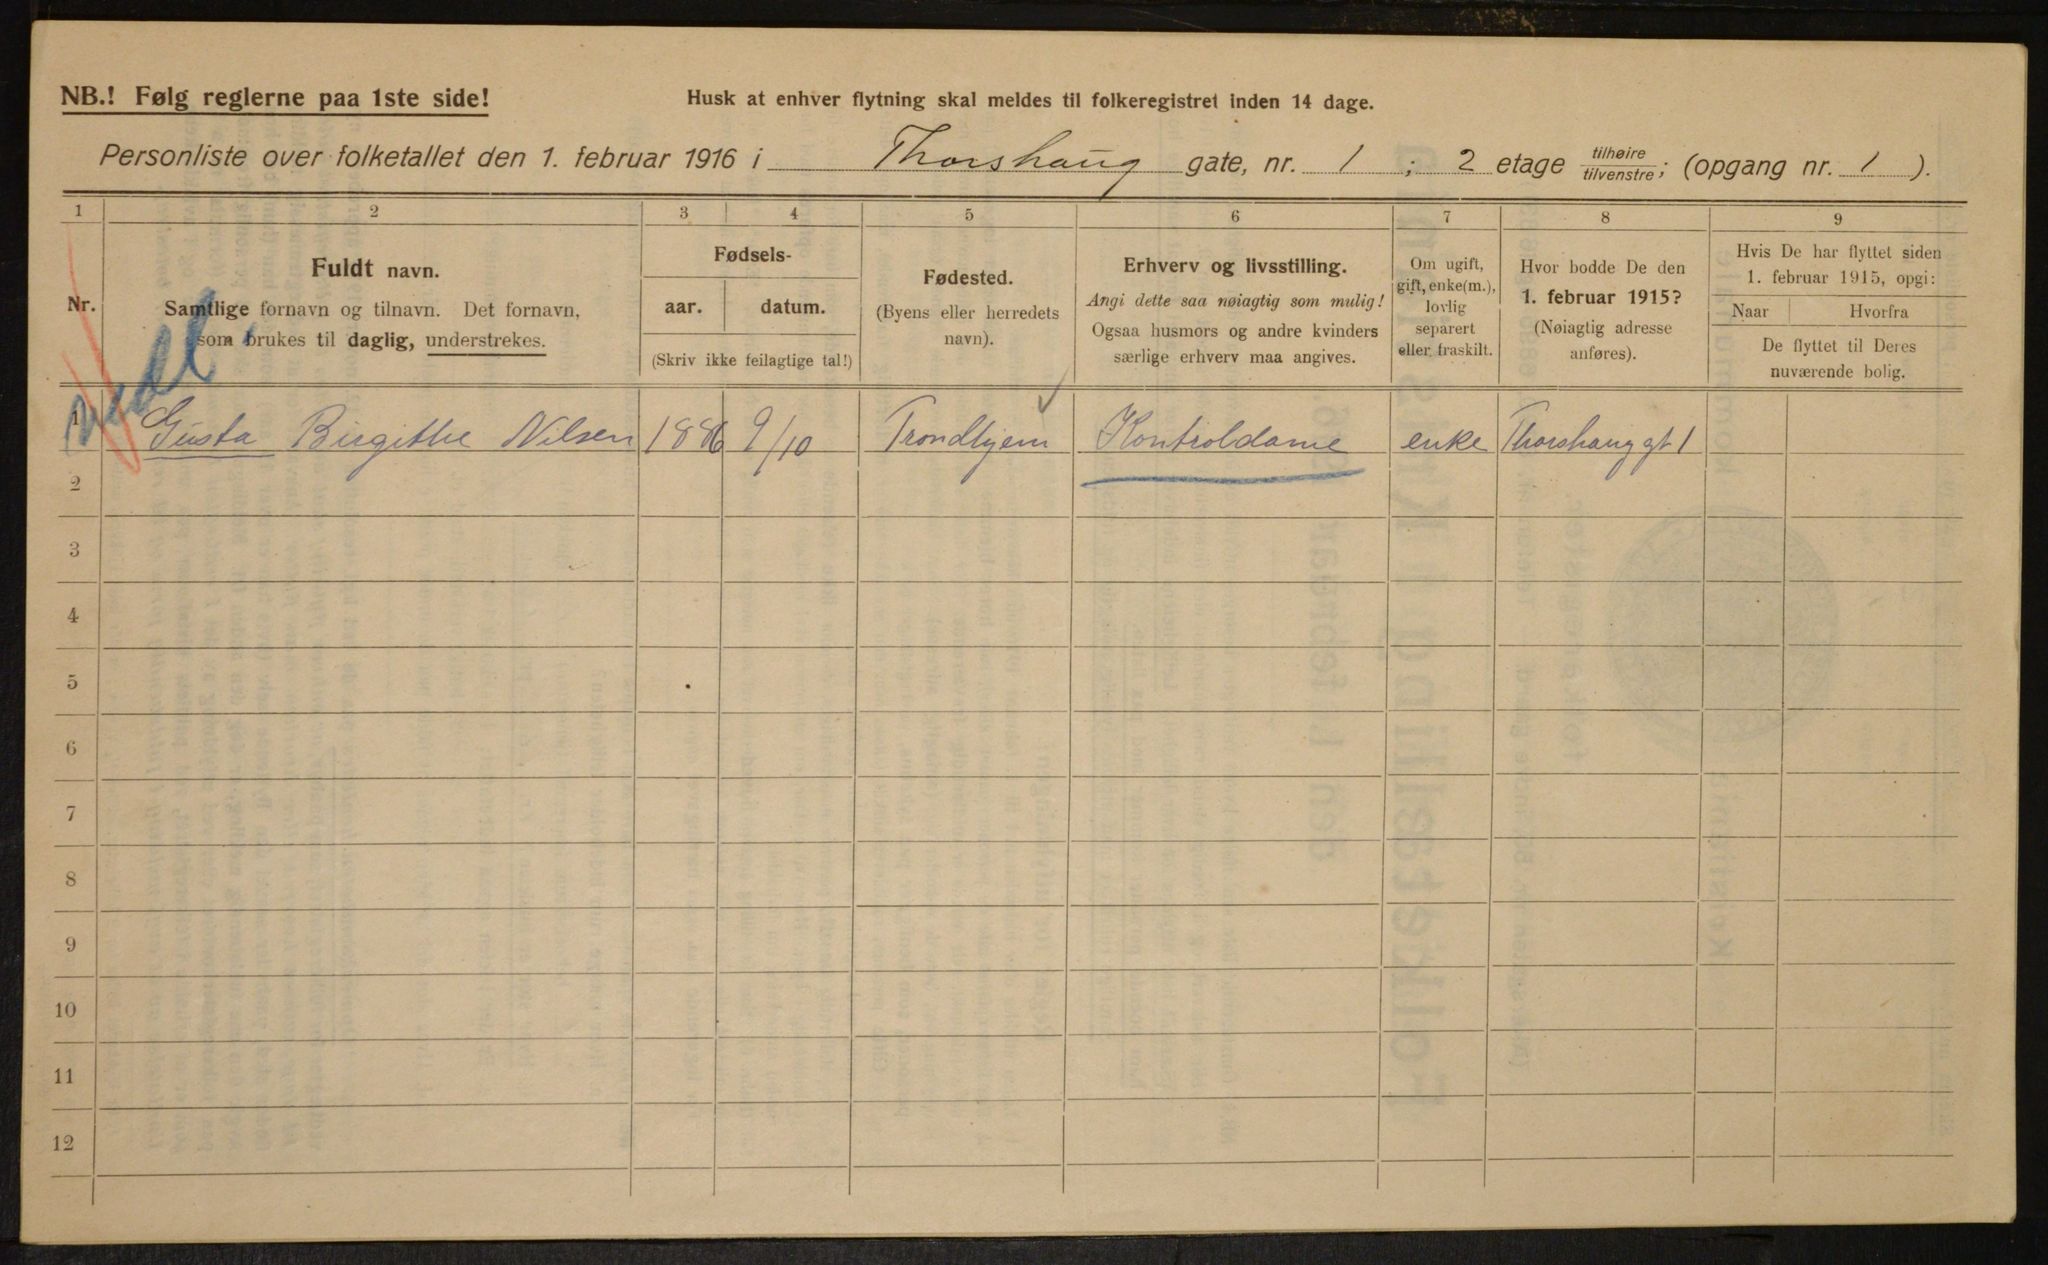 NB.! Følg reglerne paa 1ste side!
Husk at enhver flytning skal meldes til folkeregistret inden 14 dage.
Personliste over folketallet den 1. februar 1916 i Thorshaug gate, nr. 1 ; 2 etage tilhøire tilvenstre; (opgang nr. 1 ).
1 2 3 4 5 6 7 8 9
Nr.
Fuldt navn.
Samtlige fornavn og tilnavn. Det fornavn,
som brukes til daglig, understrekes.
Fødsels-
aar. datum.
(Skriv ikke feilagtige tal!)
Fødested.
(Byens eller herredets
navn).
Erhverv og livsstilling.
Angi dette saa nøiagtig som mulig!
Ogsaa husmors og andre kvinders
særlige erhverv maa angives.
Om ugift,
gift, enke(m.),
lovlig
separert
eller fraskilt.
Hvor bodde De den
1. februar 1915?
(Nøiagtig adresse
anføres).
Hvis De har flyttet siden
1. februar 1915, opgi:
Naar Hvorfra
De flyttet til Deres
nuværende bolig.
1 Gusta Birgithe Nilsen 1886 9/10 Trondhjem Kontroldame enke Thorshauggt 1
2
3
4
5
6
7
8
9
10
11
12